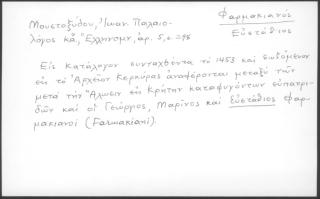 Φαρμακιανός
Εὐστάθιος
Μουστοξύδου, Ἰωαν. Παλαιο-
λόγος κἄ, Ἑλληνομν, ἀρ. 5, σ. 298
Εἰς κατάλογον συνταχθέντα τὸ 1453 καὶ σωζόμενον
εἰς τὸ Ἀρχεῖον Κερκύρας ἀναφέρονται μεταξὺ τῶν
μετὰ τὴν Ἅλωσιν εἰς Κρήτην καταφυγόντων εὐπατρι-
δῶν καὶ οἱ Γεώργιος, Μαρῖνος καὶ Εὐστάθιος Φαρ-
μακιανοί (Farmakiani).